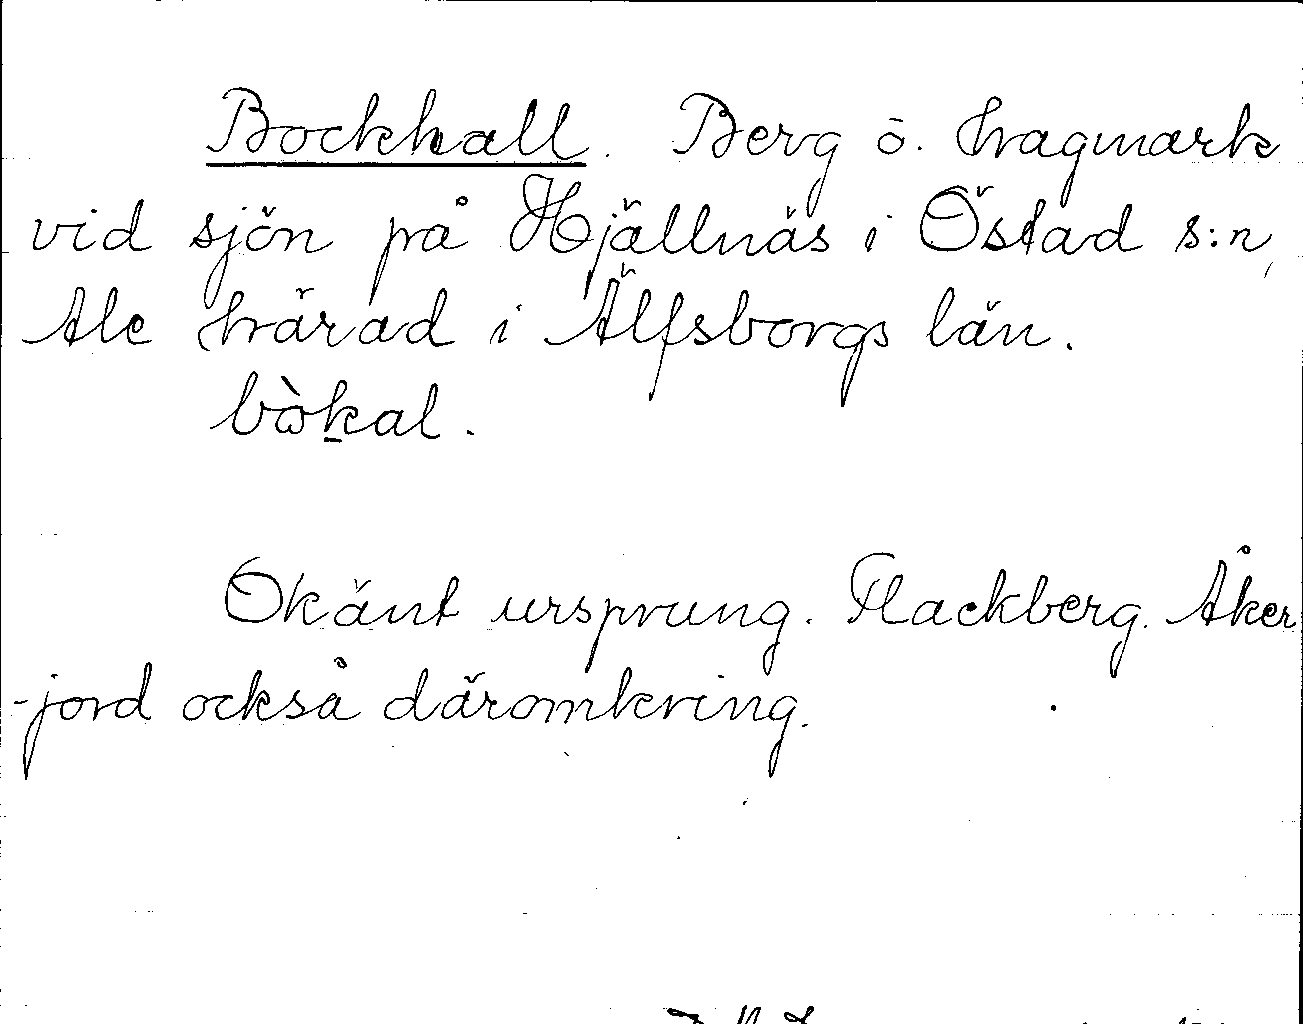 Bockhall. Berg o. hagmark
vid sjön på Hjällnäs i Östad s:n,
Ale härad i Älfsborgs län.
bὼk̲al.
Okänt ursprung. Flackberg. Åker
-jord också däromkring.